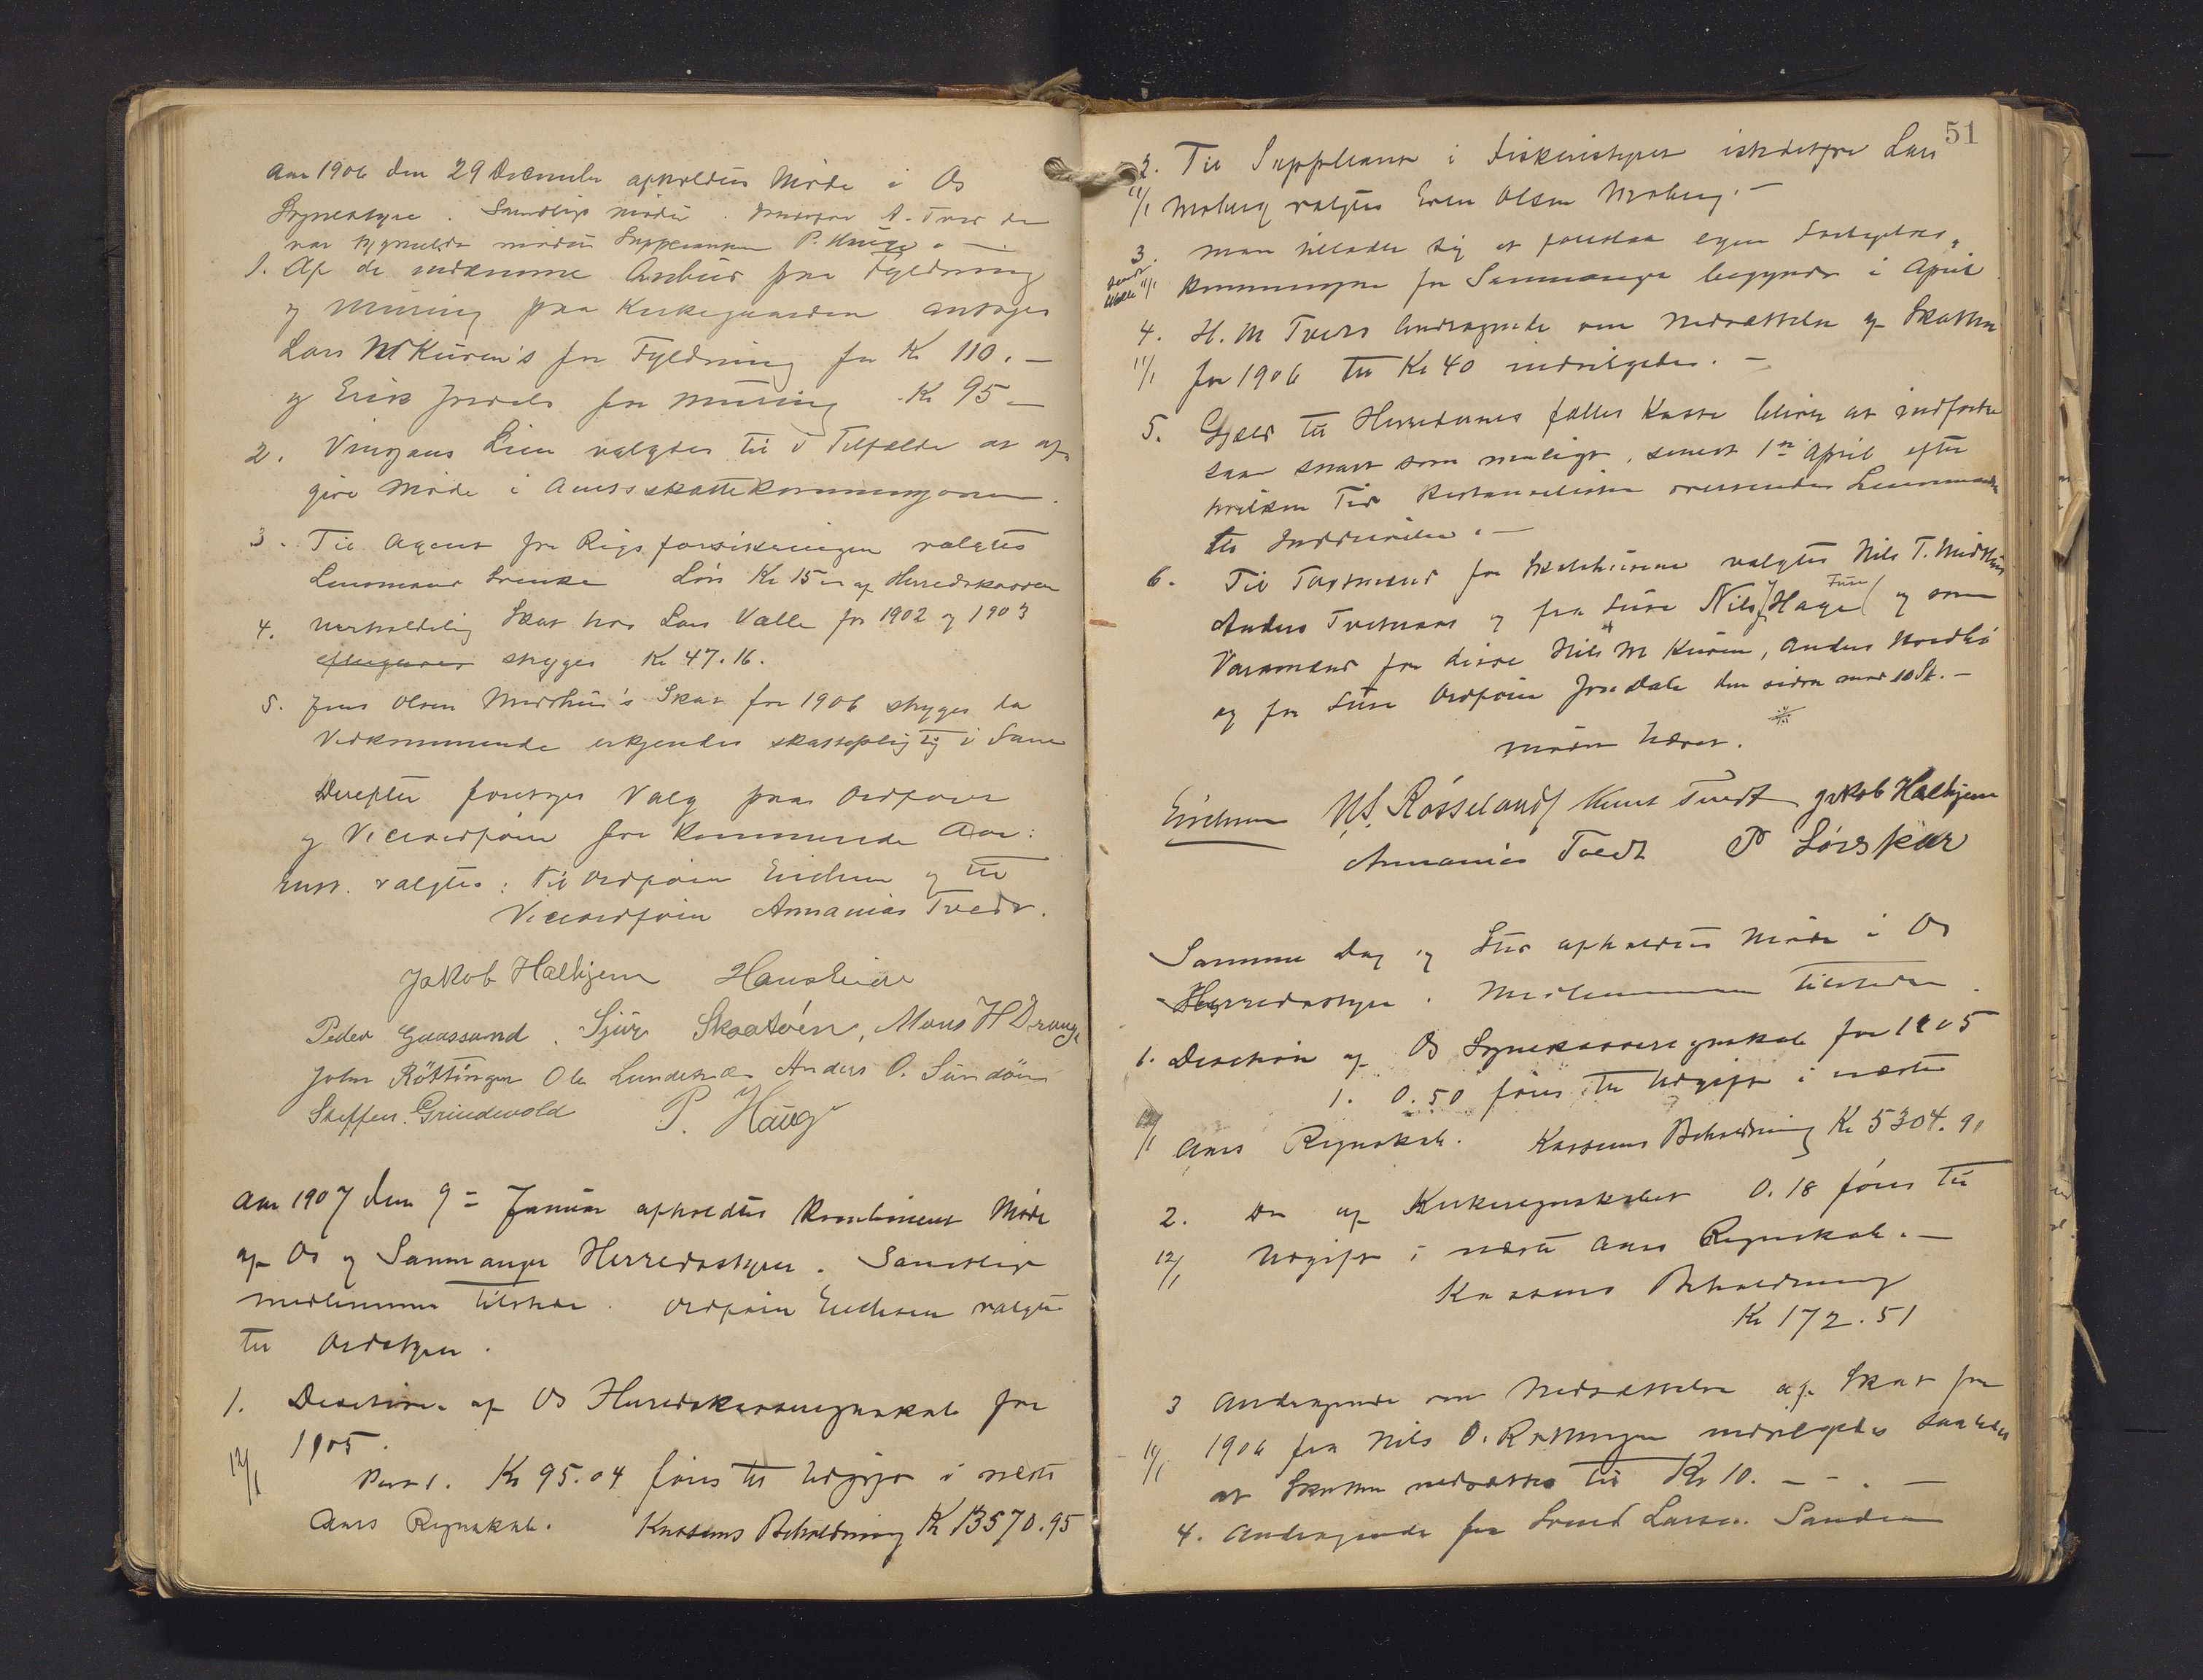 Aar 1906 den 29 December afholdtes Møde i Os
Sognestyre. Samtlige mødte. Istedetfor A. Tved der
var sygmeldt mødte Suppleanten P. Hauge. —
1. Af de indkomne Anbud paa Fyldning
og Muring paa Kirkegaarden antoges
Lars M Kuven's for Fyldning for Kr 110. —
og Erik Jrdals for Muring Kr 95 —
2. Vingans Lien valgtes til i Tilfælde at af-
give Møde i Amtsskattekommisjonen.
3. Til Agent for Rigsforsikringen valgtes
Lensmand Løn Kr 15 — af Herredskassen
4. Uerholdelig Skat hos Lars Valle for 1902 og 1903
stryges Kr 47.16.
5. Jens Olsen Medhus's Skat for 1906 stryges da
Vedkommende erkjendes skattepligtig i Fane
Derefter foretoges Valg paa Ordfører
og Viceordfører for kommende Aar:
Enst. valgtes: til Ordfører Erichsen og til
Viceordfører Annanias Tvedt.
Jakob Halhjem Hans Lien
Peder Gaassand. Sjur Skaatøen, Mons H Drange
John Röttingen Ole Lundetræ Anders O. Sundøen
Steffen Grindevold P. Haug
Aar 1907 den 9 = Januar afholdtes kombineret Møde
af Os og Samnanger Herredsstyrer. Samtlige
medlemmer tilstede. Ordfører Erichsen valgtes
til Ordstyrer.
1. Desition af Os Herredskasseregnskab for
12/1 1905.
Post 1. Kr 95.04 føres til Udgift i næste
Aars Regnskab. Kassens Beholdning Kr 13570.95
51
2. Til Suppleant i Fiskeristyret istedetfor Lars
11/1 Moberg valgtes Erik Olsen Moberg. —
3. Man tillader sig at foreslaa egen
11/1 for Samnanger begyndt i April
4. H. M Tveds Andragende om Nedsættelse af Skatten
11/1 for 1906 til Kr 40 indvilgedes. —
5. Gjæld til Herredernes fælles Kasse bliver at indfordre
saa snart som muligt, senest 1ste April efter
hvilken Tid Restancelisten oversendes Lensmanden
til Inddrivelse. —
6. Til Taxtmænd for valgtes Nils T. Midthus
Anders Tveteraas og fra Fuse Nils Hage Fuse og som
Varamænd for disse Nils M Kuven, Anders Nordbø
og for Fuse Ordfører Jrdale den sidste mod 10 St. —
Mødet hævet.
Erichsen N.S. Røsseland Knut Tvedt Jakob Halhjem
Annanias Tvedt P Sørskar
Samme Dag og Sted afholdtes Møde i Os
Herredsstyre. Medlemmerne tilstede.
1. Desition af Os Sognekasseregnskab for 1905
1. 0.50 føres til Udgift i næste
12/1 Aars Regnskab. Kassens Beholdning Kr 5304.91
2. Do af Kirkeregnskabet 0.18 føres til
12/1 Udgift i næste Aars Regnskab. —
Kassens Beholdning
Kr 172.51
3 Andragende om Nedsættelse af Skat for
11/1 1906 fra Nils O. Røttingen indvilgedes saaledes
at Skatten nedsættes til Kr 10. — - . —
4. Andragende fra Svend Larsen Sanden